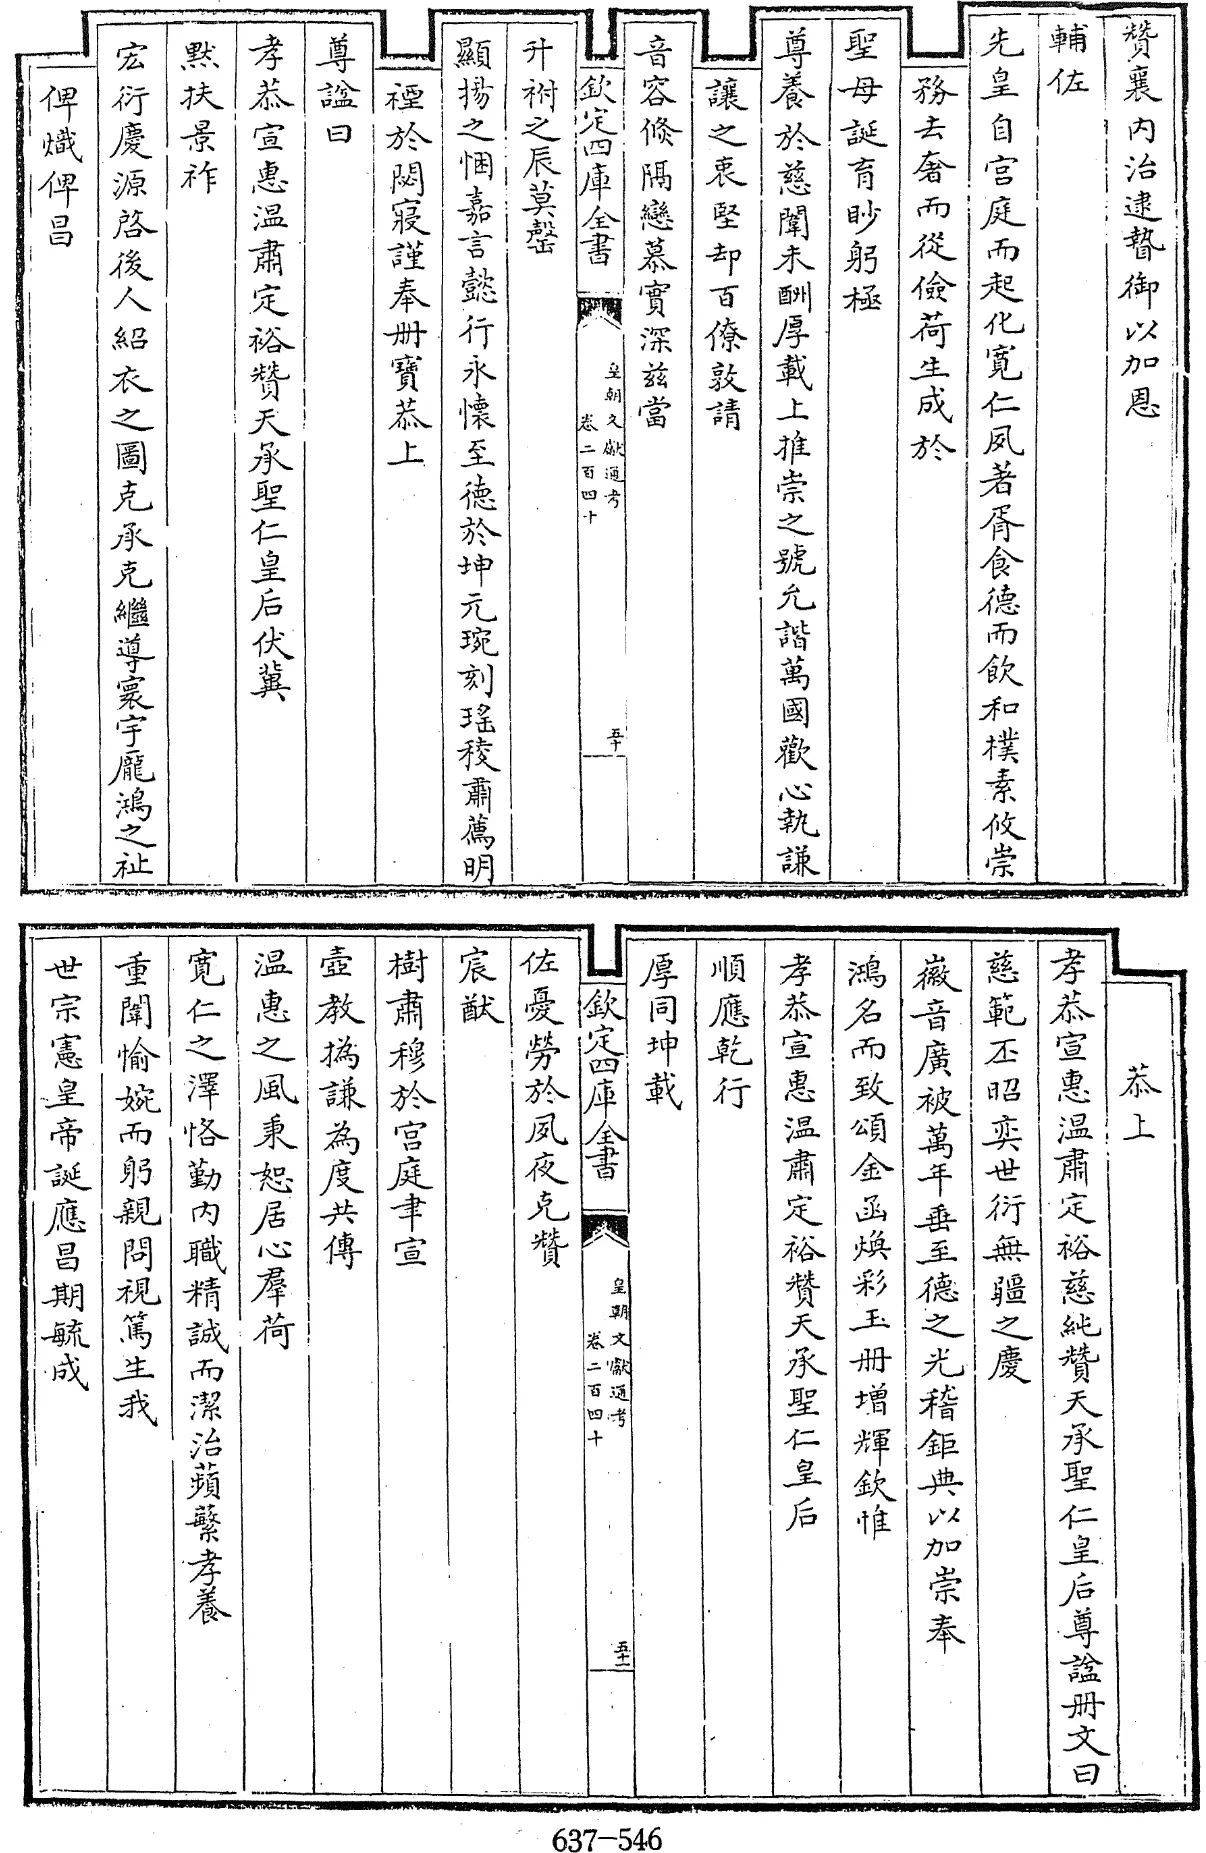 贊襄内治逮暬御以加恩
輔佐
先皇自宫庭而起化寛仁夙著胥食德而飲和樸素攸崇
務去奢而從儉荷生成於
聖母誕育眇躬極
尊養於慈闈未酬厚載上推崇之號允諧萬國歡心執謙
讓之衷堅却百僚敦請
音容倐隔戀慕實深兹當
欽定四庫全書
皇朝文獻通考
卷二百四十
五十
升祔之辰莫罄
顯揚之悃嘉言懿行永懐至德於坤元琬刻瑤稜肅薦明
禋於閟寢謹奉册寶恭上
尊諡曰
孝恭宣惠温肅定裕贊天承聖仁皇后伏冀
黙扶景祚
宏衍慶源啓後人紹衣之圖克承克繼導寰宇厖鴻之祉
俾熾俾昌
恭上
孝恭宣惠温肅定裕慈純贊天承聖仁皇后尊諡册文曰
慈範丕昭奕世衍無疆之慶
徽音廣被萬年垂至德之光稽鉅典以加崇奉
鴻名而致頌金函煥彩玉册增輝欽惟
孝恭宣惠温肅定裕贊天承聖仁皇后
順應乾行
厚同坤載
欽定四庫全書
皇朝文獻通考
卷二百四十
五十一
佐憂勞於夙夜克贊
宸猷
樹肅穆於宫庭聿宣
壼教撝謙為度共傳
温惠之風秉恕居心羣荷
寛仁之澤恪勤内職精誠而潔治蘋蘩孝養
重闈愉婉而躬親問視篤生我
世宗憲皇帝誕應昌期毓成
637-546